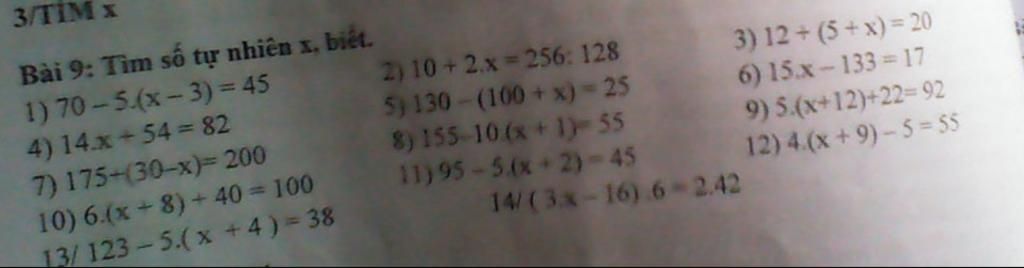 3/TÌM x
Bài 9: Tìm số tự nhiên x, biết.
1) 70 – 5.(x – 3) = 45
2) 10 + 2.x = 256: 128
3) 12 + (5 + x) = 20
4) 14.x + 54 = 82
5) 130 – (100 + x) = 25
6) 15.x – 133 = 17
7) 175+(30–x)= 200
8) 155–10.(x + 1)= 55
9) 5.(x+12)+22= 92
10) 6.(x + 8) + 40 = 100
11) 95 – 5.(x + 2) = 45
12) 4.(x + 9) – 5 = 55
13/ 123 – 5.( x + 4 ) = 38
14/ ( 3.x – 16) .6 = 2.42